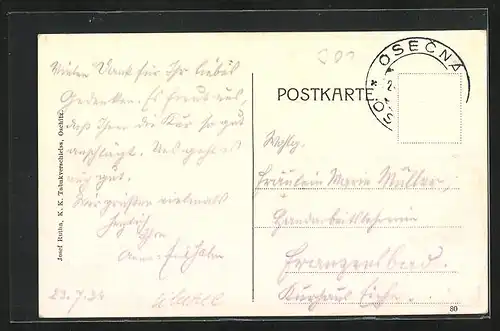 Vielen Dank für Ihr liebes
Gedenken. Es freut uns,
daß Ihnen die Kur so gut
anschlägt. Uns geht es
gut.
Wir grüßen vielmals
herzlich
Ihre
Anna
23.7.24
Josef Rutha, K. K. Tabakverschleiss, Oschitz.
POSTKARTE
OSEČNÁ
Wohlg.
Fräulein Marie Müller,
Handarbeitslehrerin
Franzensbad.
Kurhaus
80